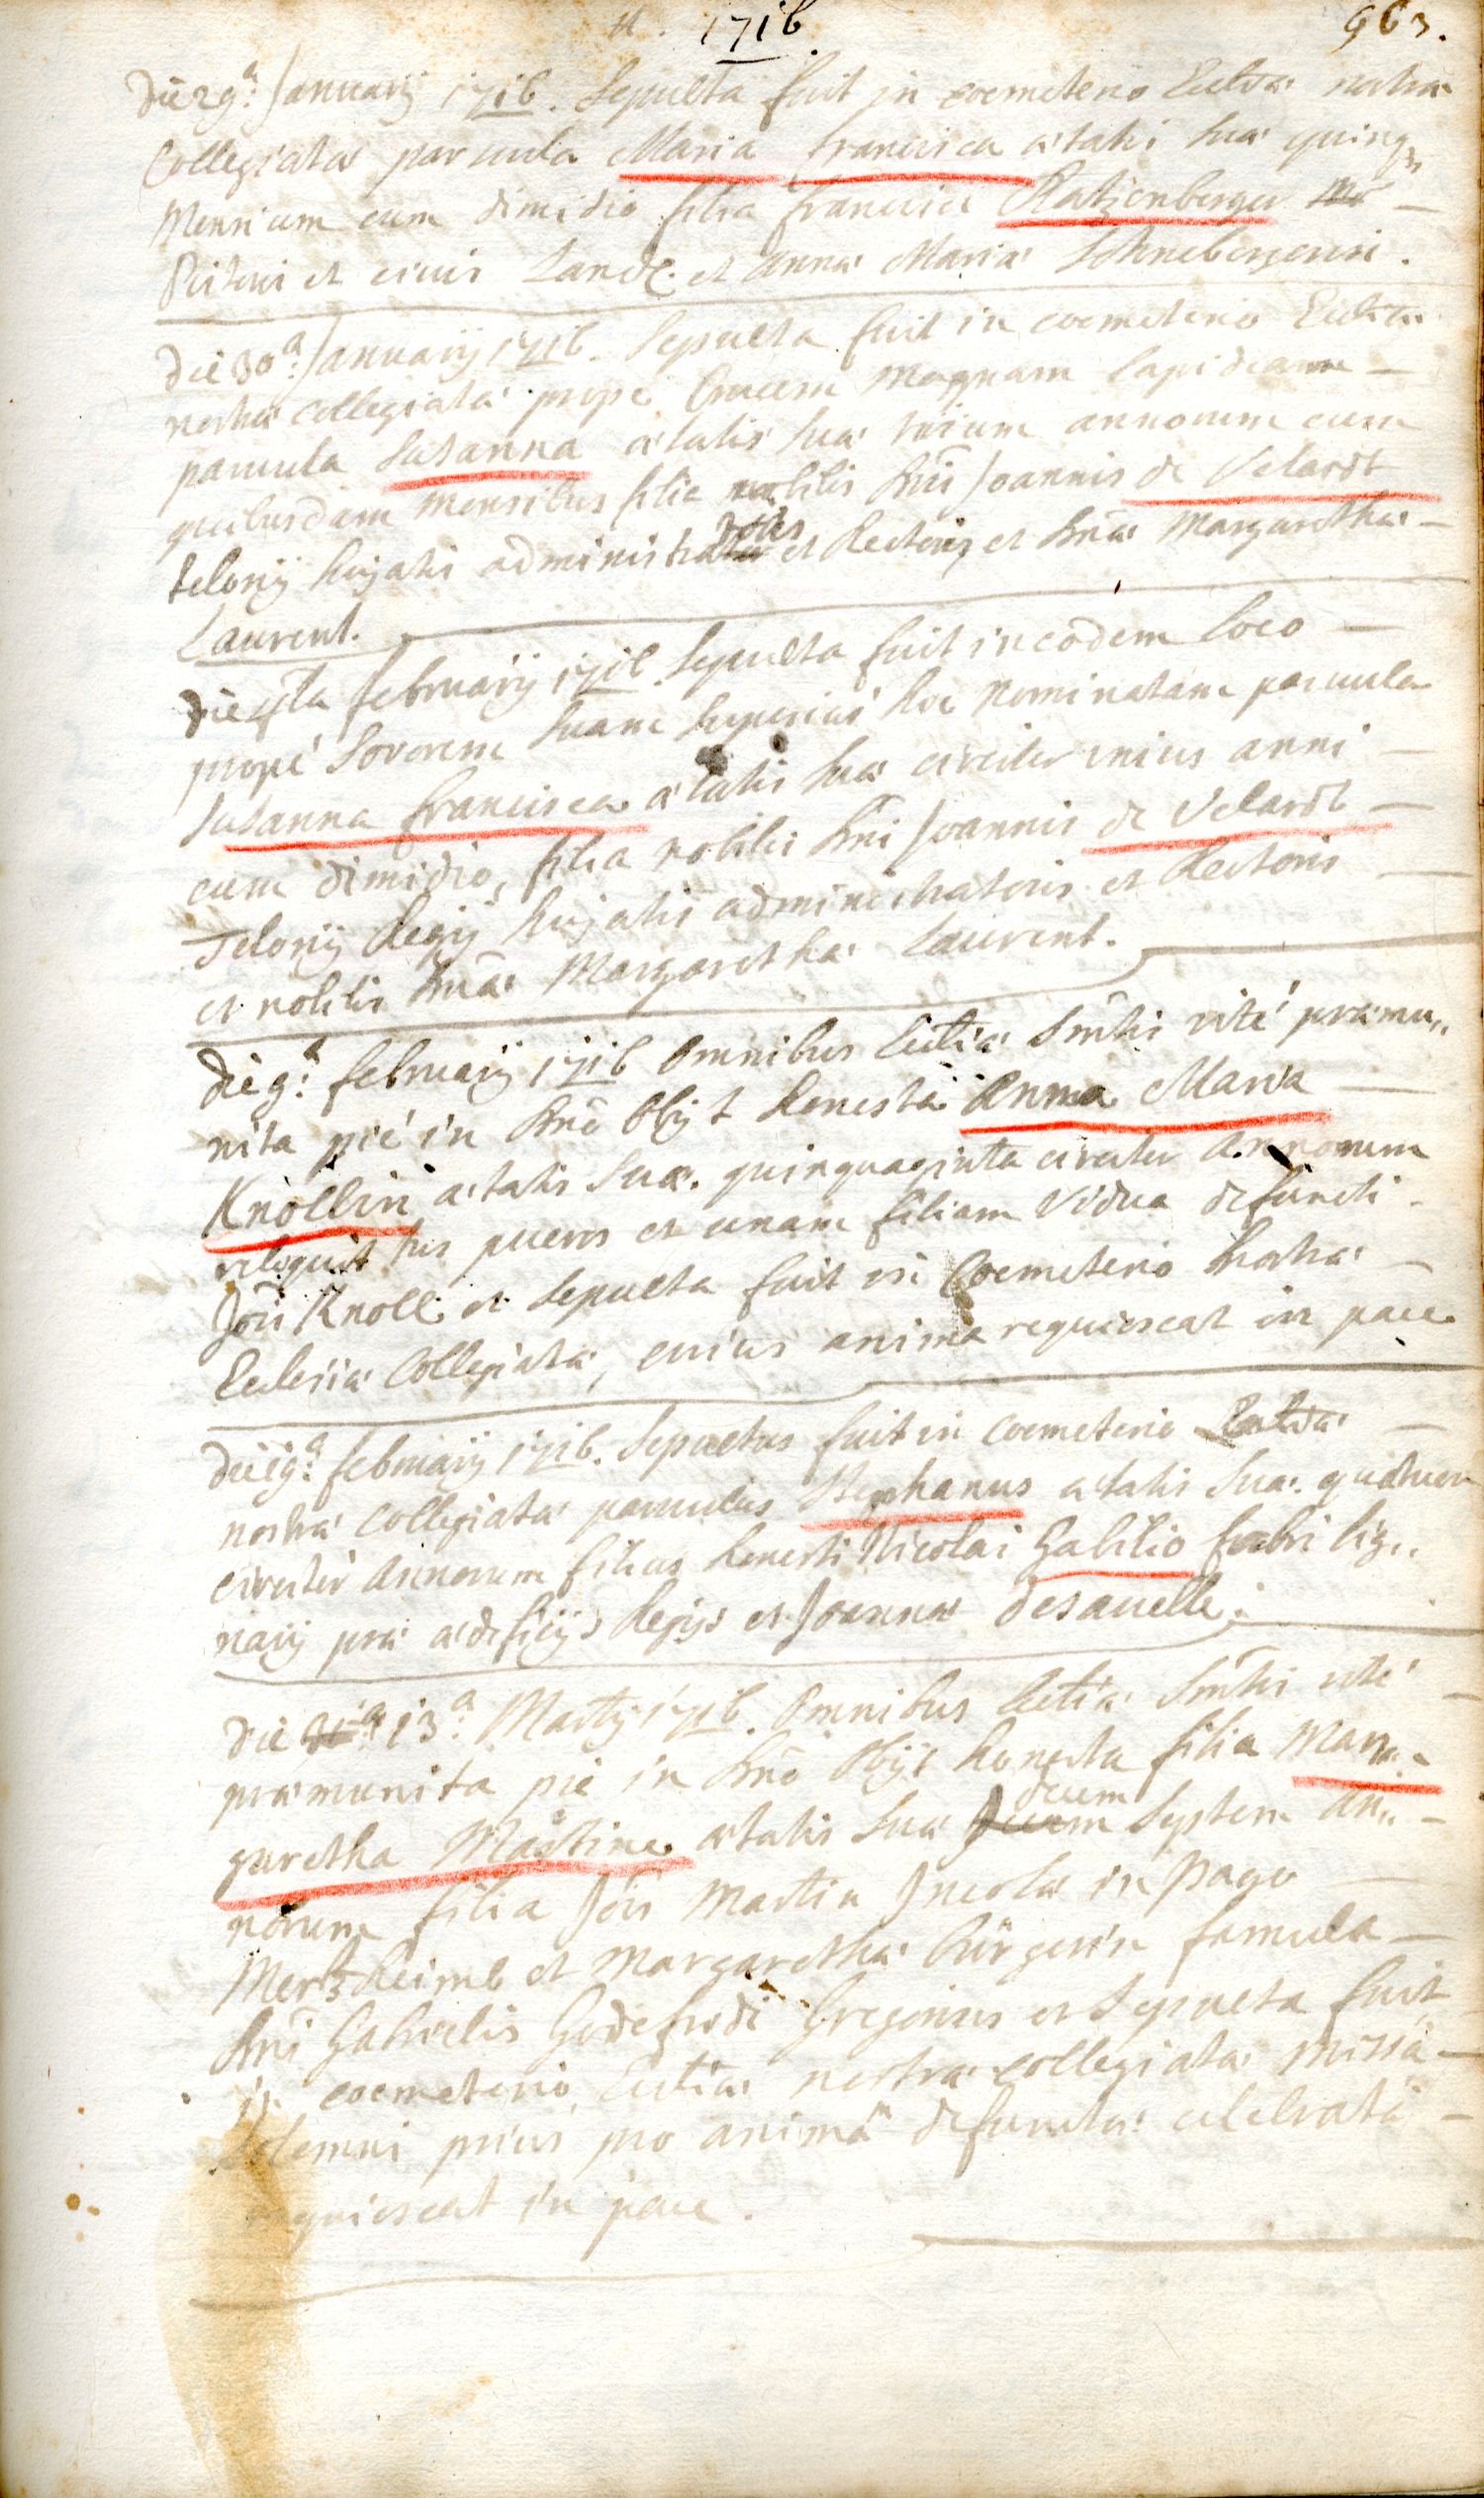 1716. 963.
Die 29a Januarij 1716. Sepulta fuit in coemeterio Ecclae nostrae
Collegiatae parvula Maria Francisca aetatis suae quinq,,
Mensium cum dimidio filia Francisci Ratzenberger
Pistoris et civis Land. et Annae Mariae Schnebergerin.
Die 30a Januarij 1716. Sepulta fuit in coemeterio Ecclae
nostrae Collegiatae prope Crucem magnam lapideam
parvula Susanna aetatis suae trium annorum cum
quibusdam mensibus filia nobilis Dni Joannis de Velardt
telonij hujatis administratoris et Rectoris et Dnae Margarethae
Laurent.
Die 4ta February 1716 Sepulta fuit in eodem loco
propé Sororem suam superius hoc nominatam parvula
Susanna Francisca aetatis suae circiter unius anni
cum dimidio, filia nobilis Dni Joannis de Velardt
Telonij Regij hujatis administratoris et Rectoris
et nobilis Dnae Margarethae Laurent.
Die 9a February 1716 Omnibus Ecctiae Smtis rité praemu,,
nita pié in Dno Obijt honesta Anna Maria
Knollin aetatis suae. quinquaginta circiter Annorum
reliquit tres pueros et unam filiam Vidua defuncti
Jois Knoll et sepulta fuit in Coemeterio nostrae
Ecclesiae Collegiatae, cuius anima requiescat in pace
Die 19a February 1716. Sepultus fuit in coemeterio Ecctiae
nostrae Collegiatae parvulus Stephanus aetatis suae. quatuor
circiter Annorum filius honesti Nicolai Galilio fabri lig,,
narij prae aedificijs Regijs et Joannae desauelle.
Die 13a Martij 1716. Omnibus Ecctiae Smtis rité
praemunita pie in Dno Obijt honesta filia Mar
garetha Martine aetatis suae decem septem an,,
norum filia Jois Martin Incolae in pago
Mertzheimb et Margarethae Bürgerin famula
Dni Gabrielis Godefridi Gregorius et Sepulta fuit
in coemeterio Ecctiae nostrae Collegiatae missâ
Solemni prius pro animâ defunctae celebratâ
requiescat in pace.